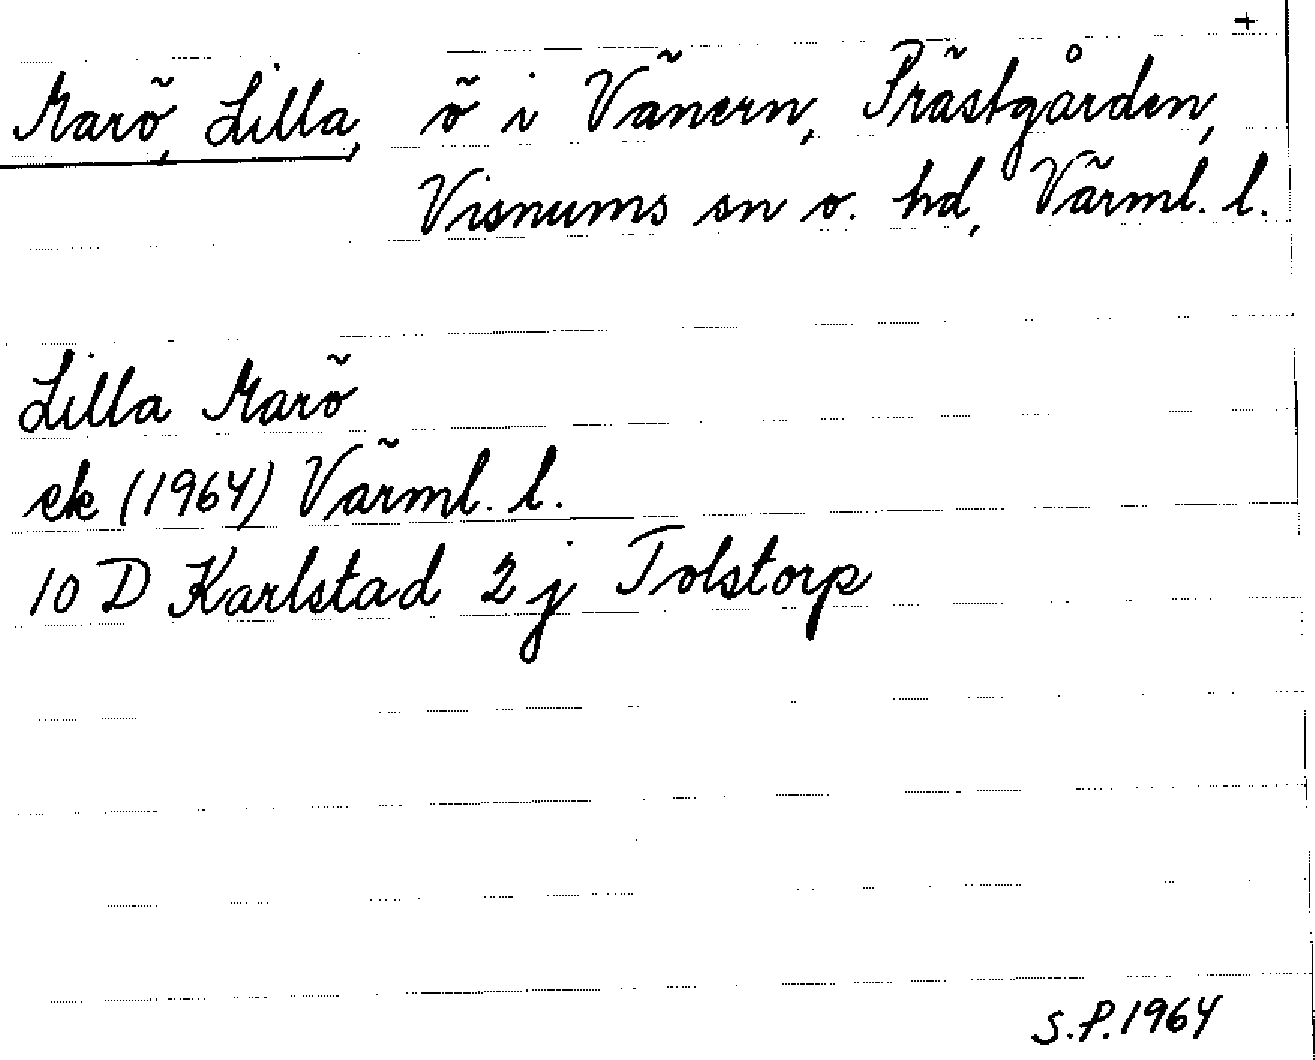 +
Marö, Lilla, ö i Vänern, Prästgården,
Visnums sn o. hd, Värml. l.
Lilla Marö
ek (1964) Värml. l.
10 D Karlstad 2 j Tolstorp
S.P. 1964